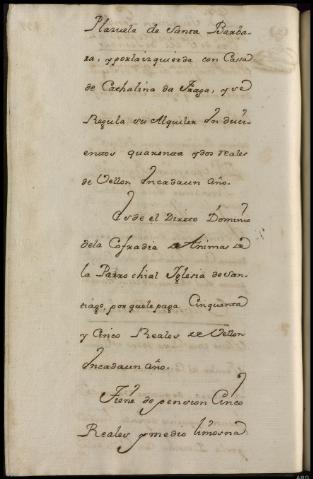 Plazuela de Santa Barba-
ra, y por la izquierda con Cassa
de Cathalina da Fraga, y se
Regula su Alquiler En duci-
entos quarenta y dos reales
de Vellon Encadaun año.
Es de el Direto Dominio
dela Cofradia de Animas de
la Parrochial Iglesia de San-
tiago, por quele paga Cinquenta
y Cinco Reales de Vellon
Encadaun año.
Tiene de pension Cinco
Reales y medio limosna